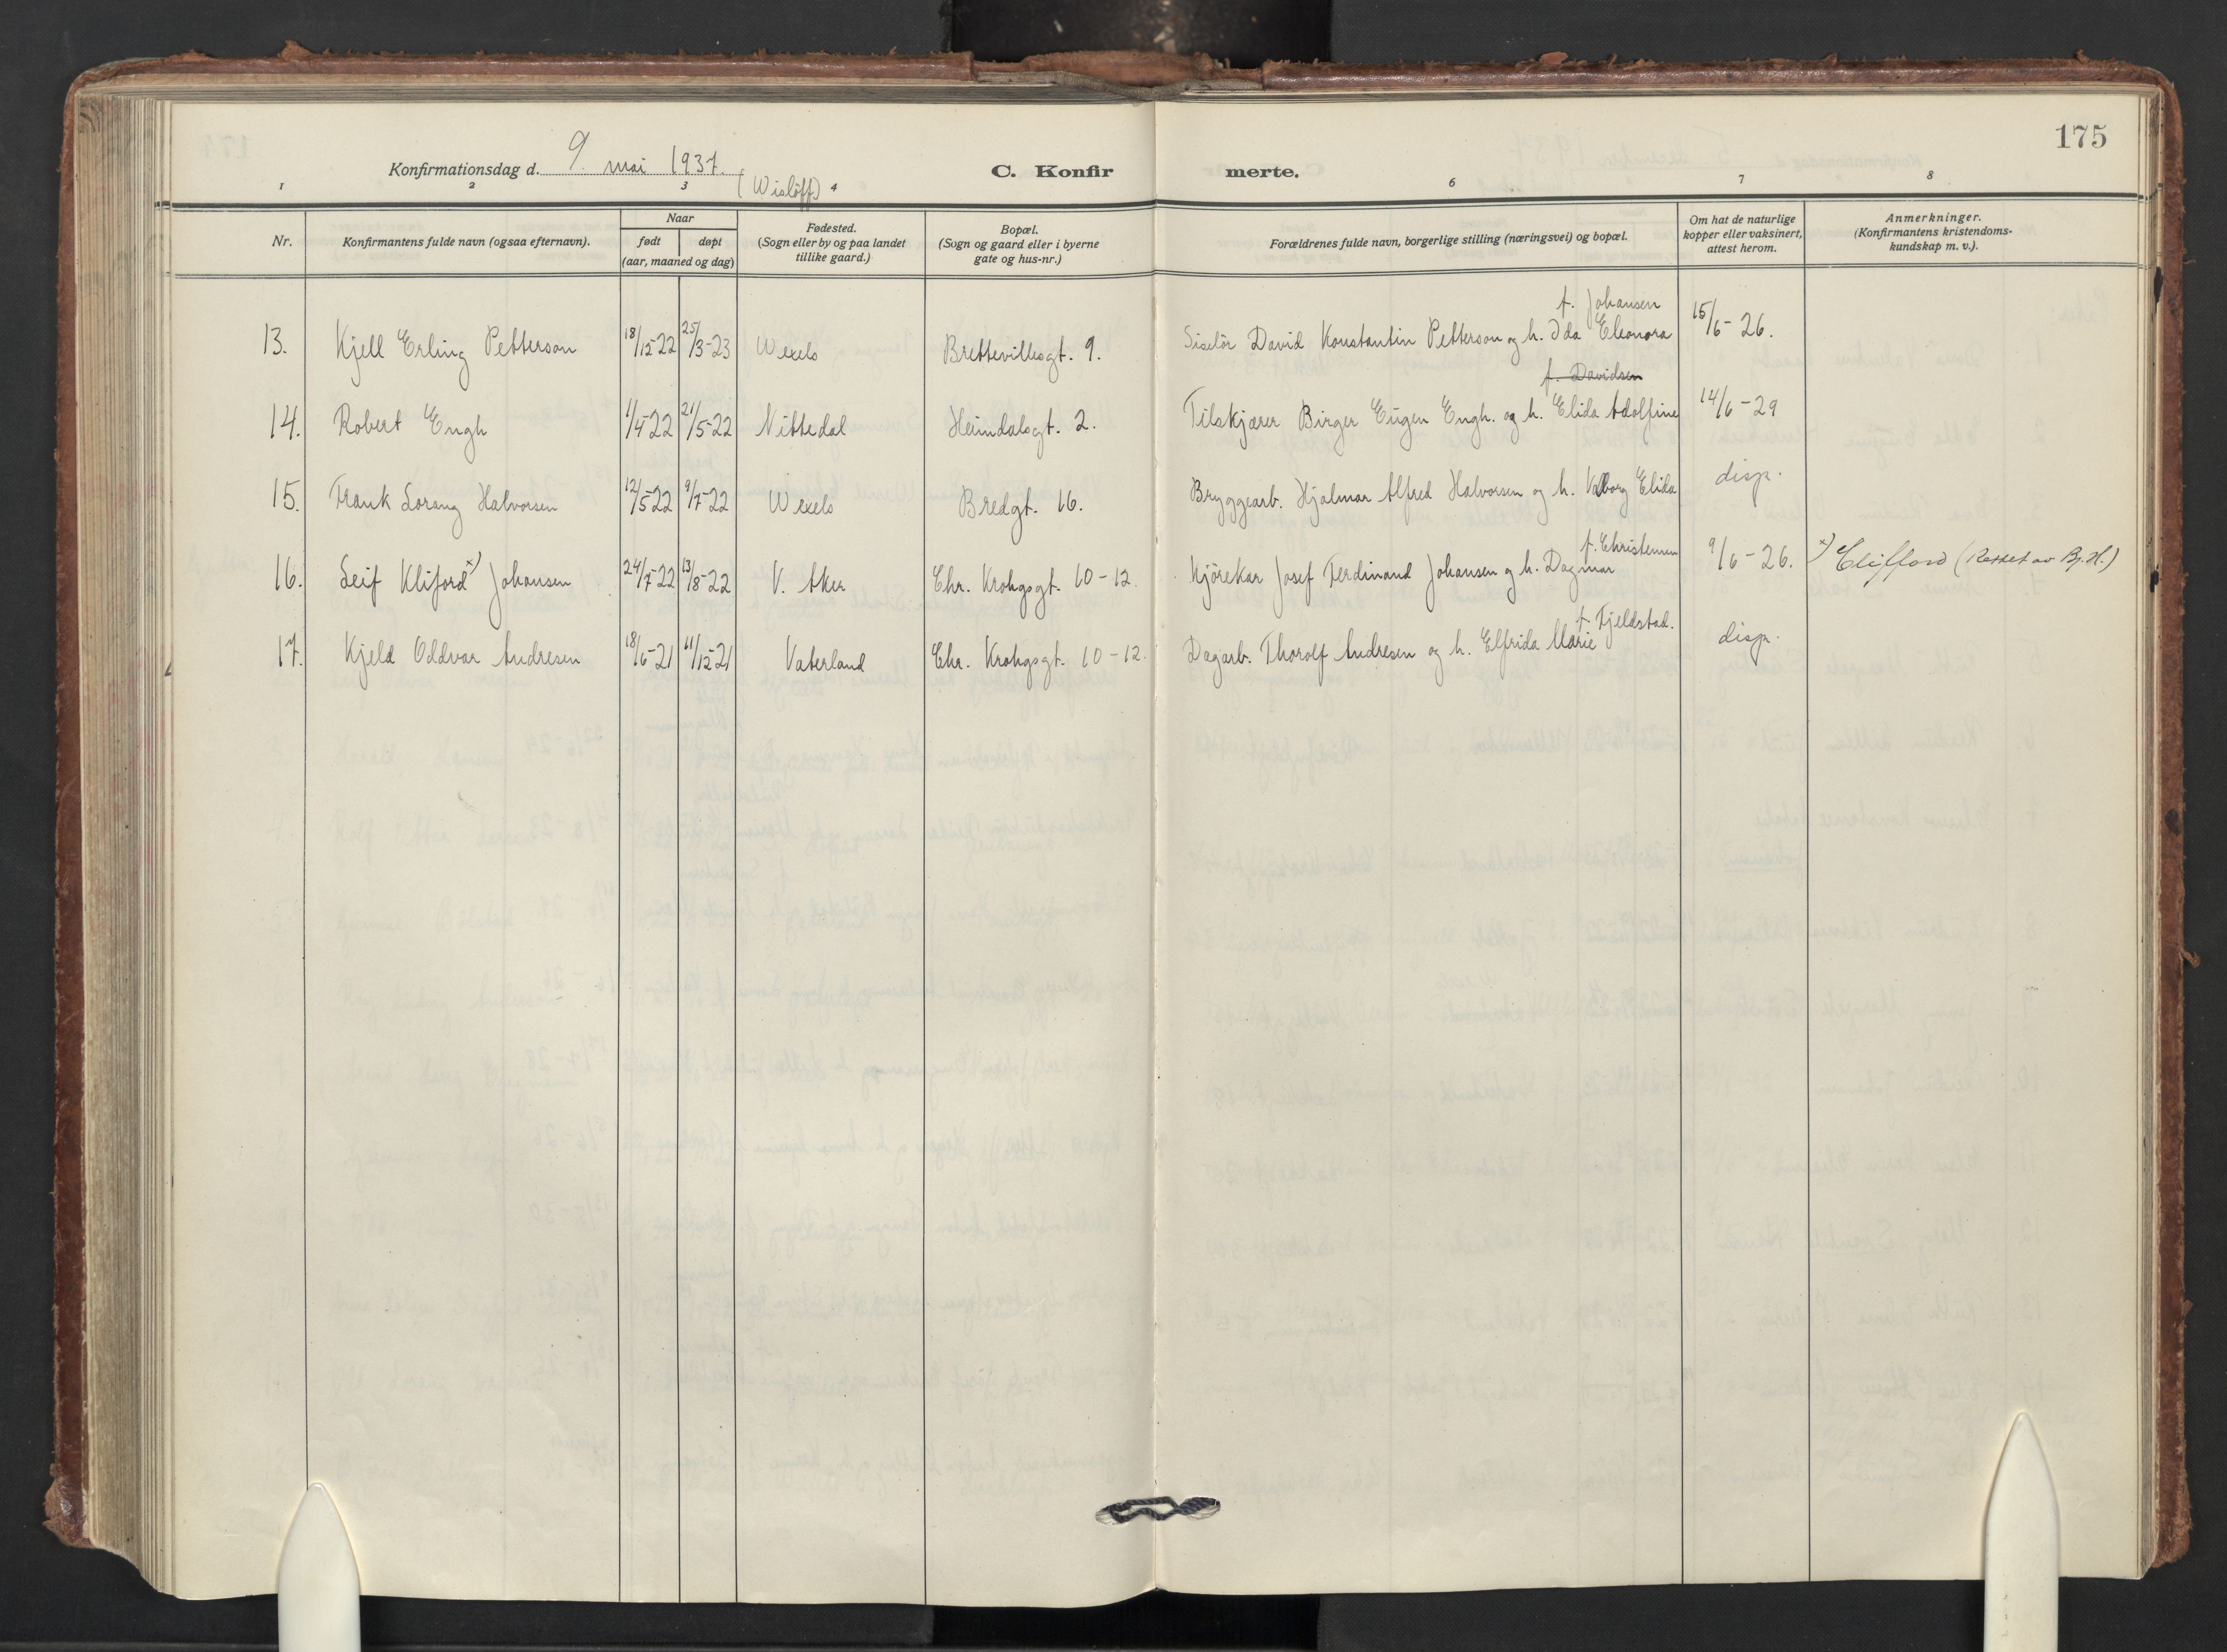 175
Konfirmationsdag d. 9. mai 1937.
(Wisløff)
C. Konfirmerte.
1 2 3 4 6 7 8
Nr. Konfirmantens fulde navn (ogsaa efternavn). Naar født døpt (aar, maaned og dag) Fødested. (Sogn eller by og paa landet tillike gaard.) Bopæl. (Sogn og gaard eller i byerne gate og hus-nr.) Forældrenes fulde navn, borgerlige stilling (næringsvei) og bopæl. Om hat de naturlige kopper eller vaksinert, attest herom. Anmerkninger. (Konfirmantens kristendomskundskap m. v.).
f. Johansen
13. Kjell Erling Petterson 18/12-22 25/3-23 Wexels Brettevillesgt. 9. Siselör David Konstantin Petterson og h. Ida Eleonora 15/6-26.
f. Davidsen
14. Robert Engh 1/4-22 21/5-22 Nittedal Heimdalsgt. 2. Tilskjærer Birger Eugen Engh. og h. Elida Adolfine 14/6-29
15. Frank Lorang Halvorsen 12/5-22 9/7-22 Wexels Bredgt. 16. Bryggearb. Hjalmar Alfred Halvorsen og h. Valborg Elida disp.
f. Christensen
16. Leif Kliford x) Johansen 24/7-22 13/8-22 V. Aker Chr. Krohgsgt. 10-12. Kjörekar Josef Ferdinand Johansen og h. Dagmar 9/6-26. x) Clifford (Rettet av Bj. H.)
f. Fjeldstad.
17. Kjeld Oddvar Andresen 18/6-21 11/12-21 Vaterland Chr. Krohgsgt. 10-12. Dagarb. Thorolf Andresen og h. Elfrida Marie disp.